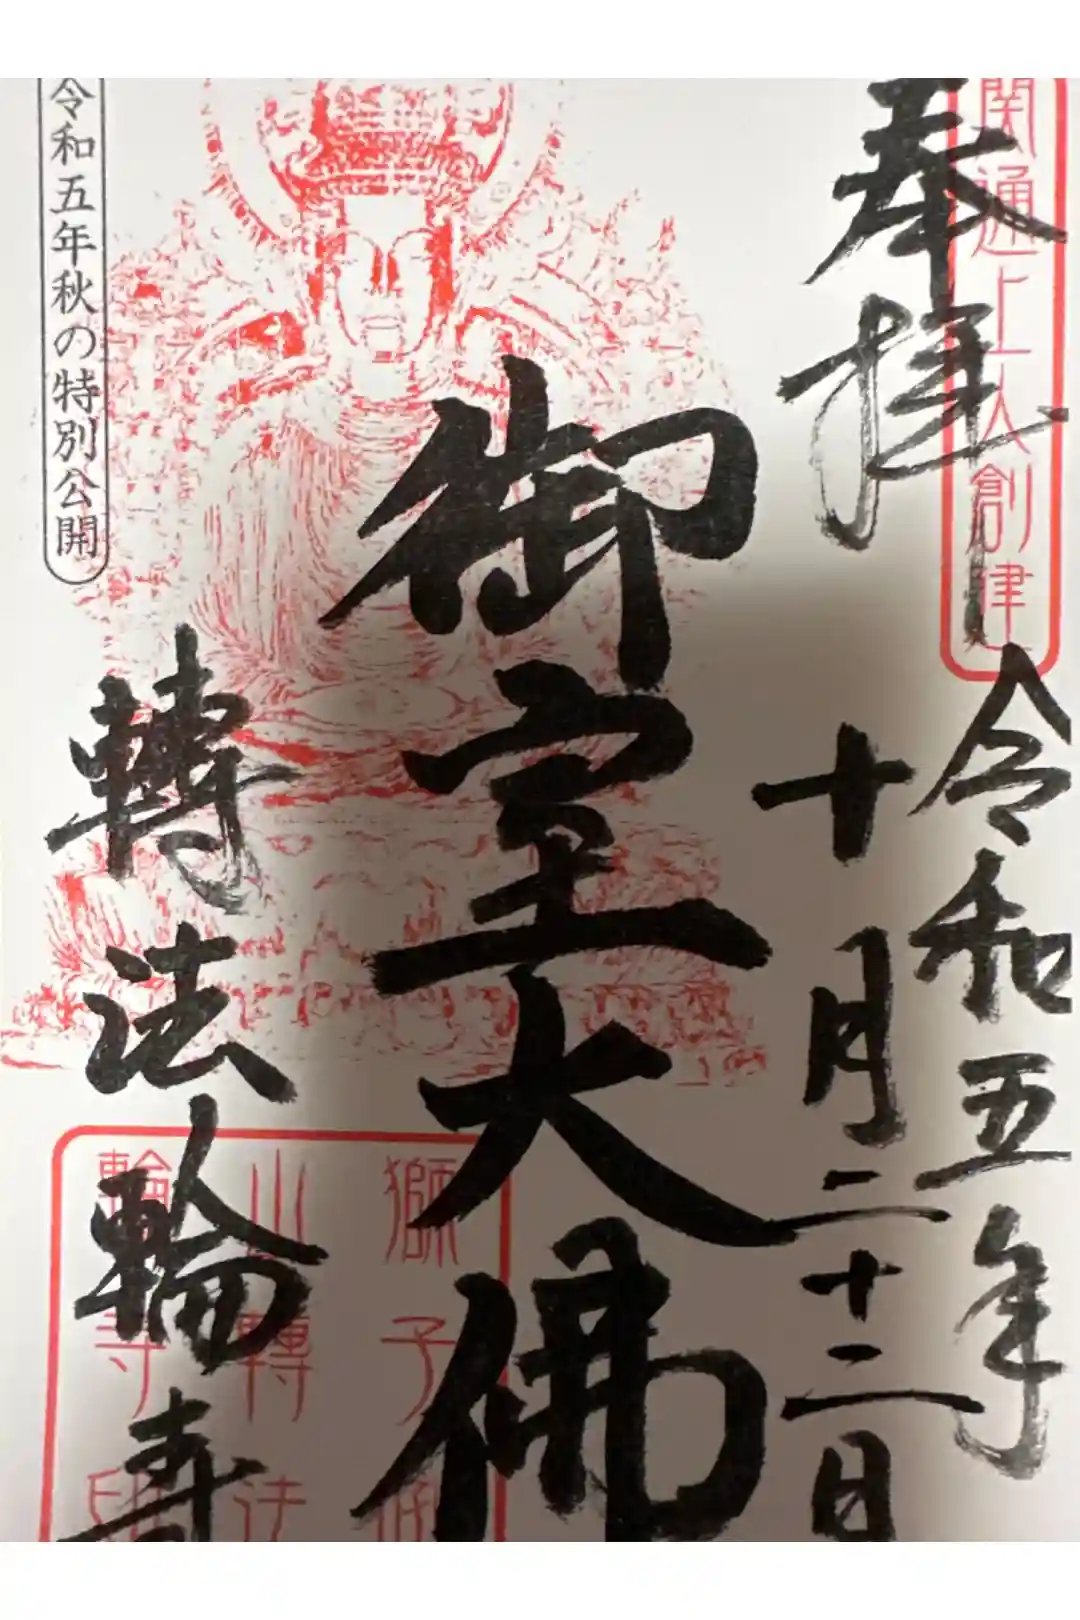 奉拝
関通上人創建
令和五年
十月二十二日
御室大佛
轉法輪寺
令和五年秋の特別公開
獅子
山轉法
輪寺印